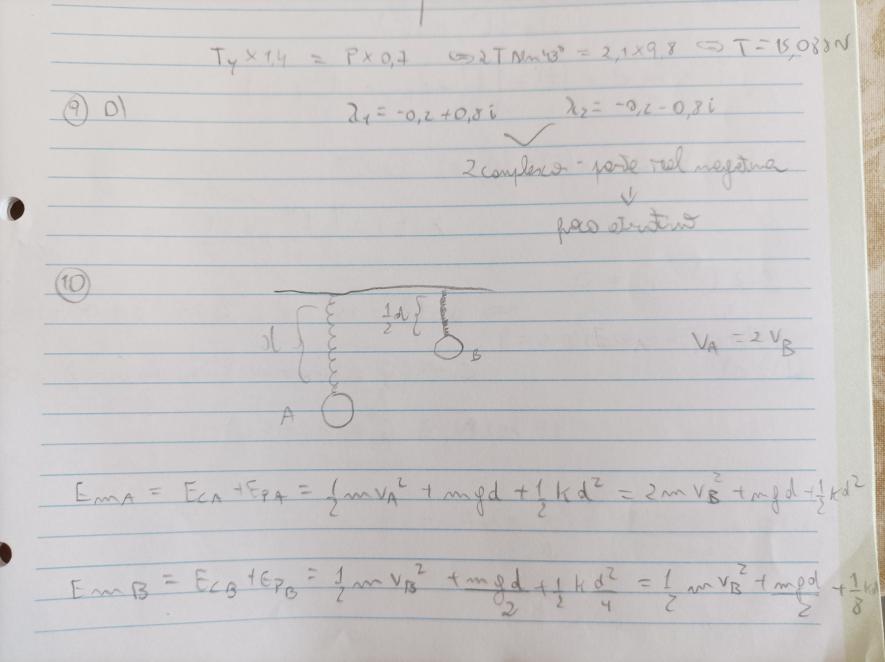 T_y × 1,4 = P × 0,7 ⇔ 2 T sin 43° = 2,1 × 9,8 ⇔ T = 15,088 N
9 D) λ₁ = -0,2 + 0,8 i λ₂ = -0,2 - 0,8 i
2 complexos - parte real negativa
↓
foco atrativo
10
d { ½ d { B V_A = 2 V_B
A
E_mA = E_cA + E_pA = ½ m V_A² + m g d + ½ k d² = 2 m V_B² + m g d + ½ k d²
E_mB = E_cB + E_pB = ½ m V_B² + mgd/2 + ½ k d²/4 = ½ m V_B² + mgd/2 + 1/8 k